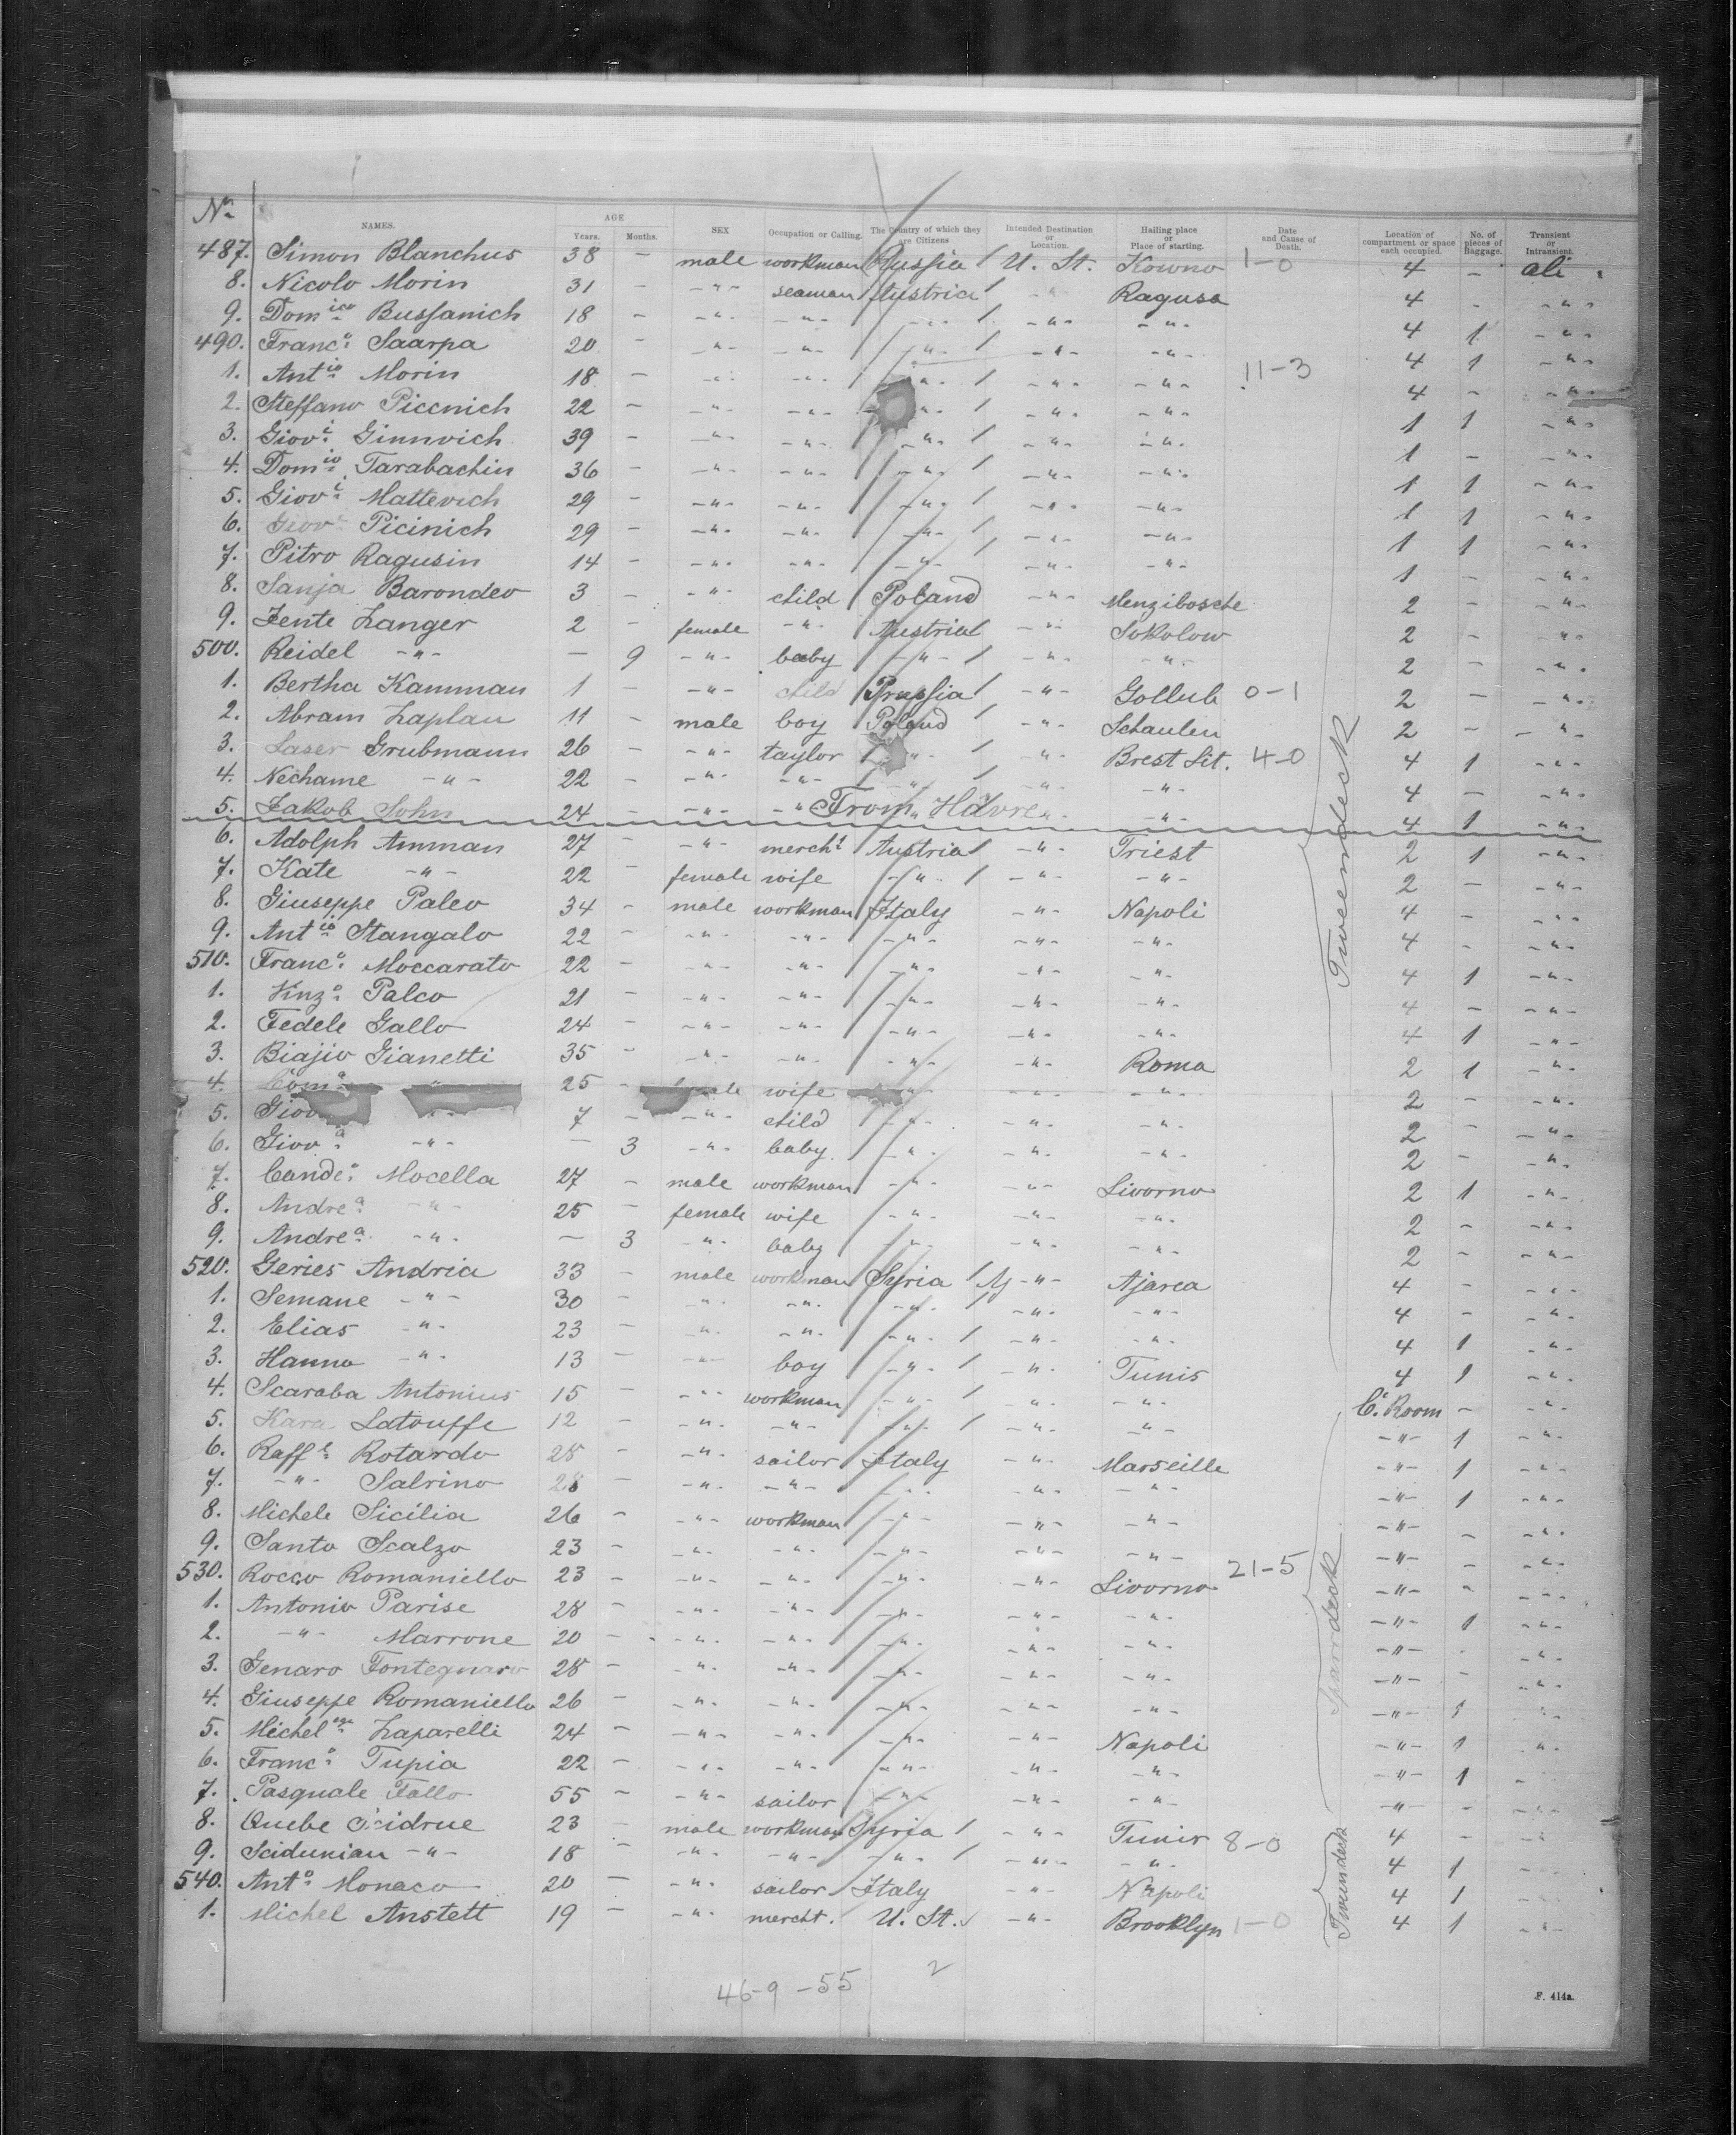 No. NAMES. AGE Years. Months. SEX Occupation or Calling. The Country of which they are Citizens Intended Destination or Location. Hailing place or Place of starting. Date and Cause of Death. Location of compartment or space each occupied. No. of pieces of Baggage. Transient or Intransient.
487. Simon Blanchus 38 - male workman Russia / U. St. Kowno 1-0 4 - ali
8. Nicolo Morin 31 - -"- seaman Austria / -"- Ragusa 4 - -"-
9. Domico Bussanich 18 - -"- -"- -"- / -"- -"- 4 1 -"-
490. Franco. Saarpa 20 - -"- -"- -"- / -"- -"- 4 1 -"-
1. Antio Morin 18 - -"- -"- -"- / -"- -"- 11-3 4 - -"-
2. Steffano Piccnich 22 - -"- -"- -"- / -"- -"- 1 1 -"-
3. Giovi. Ginnvich 39 - -"- -"- -"- / -"- -"- 1 - -"-
4. Domio Tarabachin 36 - -"- -"- -"- / -"- -"- 1 1 -"-
5. Giovi. Mattevich 29 - -"- -"- -"- / -"- -"- 1 1 -"-
6. Giovi. Picinich 29 - -"- -"- -"- / -"- -"- 1 1 -"-
7. Pitro Ragusin 14 - -"- -"- -"- / -"- -"- 1 - -"-
8. Sanja Barondeo 3 - -"- child Poland -"- Menzibosche 2 - -"-
9. Jente Langer 2 - female -"- Austria / -"- Sokolow 2 - -"-
500. Reidel -"- - 9 -"- baby -"- / -"- -"- 2 - -"-
1. Bertha Kamman 1 - -"- child Prussia / -"- Gollub 0-1 2 - -"-
2. Abram Kaplan 11 - male boy Poland / -"- Schaulen 2 - -"-
3. Laser Grubmann 26 - -"- taylor -"- / -"- Brest Lit. 4-0 4 1 -"-
4. Nechame -"- 22 - -"- -"- -"- / -"- -"- 4 - -"-
5. Jakob Sohn 24 - -"- -"- From Hâvre -"- -"- 4 1 -"-
Tweendeck
6. Adolph Amman 27 - -"- mercht Austria / -"- Triest 2 1 -"-
7. Kate -"- 22 - female wife -"- / -"- -"- 2 - -"-
8. Giuseppe Paleo 34 - male workman Italy -"- Napoli 4 - -"-
9. Antio Stangalo 22 - -"- -"- -"- -"- -"- 4 - -"-
510. Franco. Moccarato 22 - -"- -"- -"- -"- -"- 4 1 -"-
1. Vinzo. Palco 21 - -"- -"- -"- -"- -"- 4 - -"-
2. Fedele Gallo 24 - -"- -"- -"- -"- -"- 4 1 -"-
3. Biajio Gianetti 35 - -"- -"- -"- -"- Roma 2 1 -"-
4. -"- 25 - wife -"- -"- -"- 2 - -"-
5. Giov -"- 7 - -"- child -"- -"- -"- 2 - -"-
6. Giova -"- - 3 -"- baby -"- -"- -"- 2 - -"-
7. Cando. Mocella 27 - male workman -"- -"- Livorno 2 1 -"-
8. Andrea -"- 25 - female wife -"- -"- -"- 2 - -"-
9. Andrea -"- - 3 -"- baby -"- -"- -"- 2 - -"-
520. Geries Andria 33 - male workman Syria / -"- Ajarca 4 - -"-
1. Semane -"- 30 - -"- -"- -"- / -"- -"- 4 - -"-
2. Elias -"- 23 - -"- -"- -"- / -"- -"- 4 1 -"-
3. Hanno -"- 13 - -"- boy -"- / -"- Tunis 4 1 -"-
4. Scaraba Antonius 15 - -"- workman -"- / -"- -"- C. Room - -"-
5. Kara Latouffe 12 - -"- -"- -"- / -"- -"- -"- 1 -"-
6. Raffe Rotardo 28 - -"- sailor Italy -"- Marseille -"- 1 -"-
7. -"- Salrino 28 - -"- -"- -"- -"- -"- -"- 1 -"-
8. Michele Sicilia 26 - -"- workman -"- -"- -"- -"- - -"-
9. Santo Scalzo 23 - -"- -"- -"- -"- -"- -"- - -"-
530. Rocco Romaniello 23 - -"- -"- -"- -"- Livorno 21-5 -"- - -"-
Spardeck
1. Antonio Parise 28 - -"- -"- -"- -"- -"- -"- 1 -"-
2. -"- Marrone 20 - -"- -"- -"- -"- -"- -"- - -"-
3. Genaro Fontegnaro 28 - -"- -"- -"- -"- -"- -"- - -"-
4. Giuseppe Romaniello 26 - -"- -"- -"- -"- -"- -"- 1 -"-
5. Michel Zaparelli 24 - -"- -"- -"- -"- Napoli -"- 1 -"-
6. Franco. Tupia 22 - -"- -"- -"- -"- -"- -"- 1 -"-
7. Pasquale Fallo 55 - -"- sailor -"- -"- -"- -"- - -"-
8. Quebe 23 - male workman Syria / -"- Tunis 8-0 4 - -"-
9. Scidunian -"- 18 - -"- -"- -"- / -"- -"- 4 1 -"-
540. Anto. Monaco 20 - -"- sailor Italy -"- Napoli 4 1 -"-
1. Michel Anstett 19 - -"- mercht. U. St. -"- Brooklyn 1-0 4 1 -"-
46-9-55 2
F. 414a.